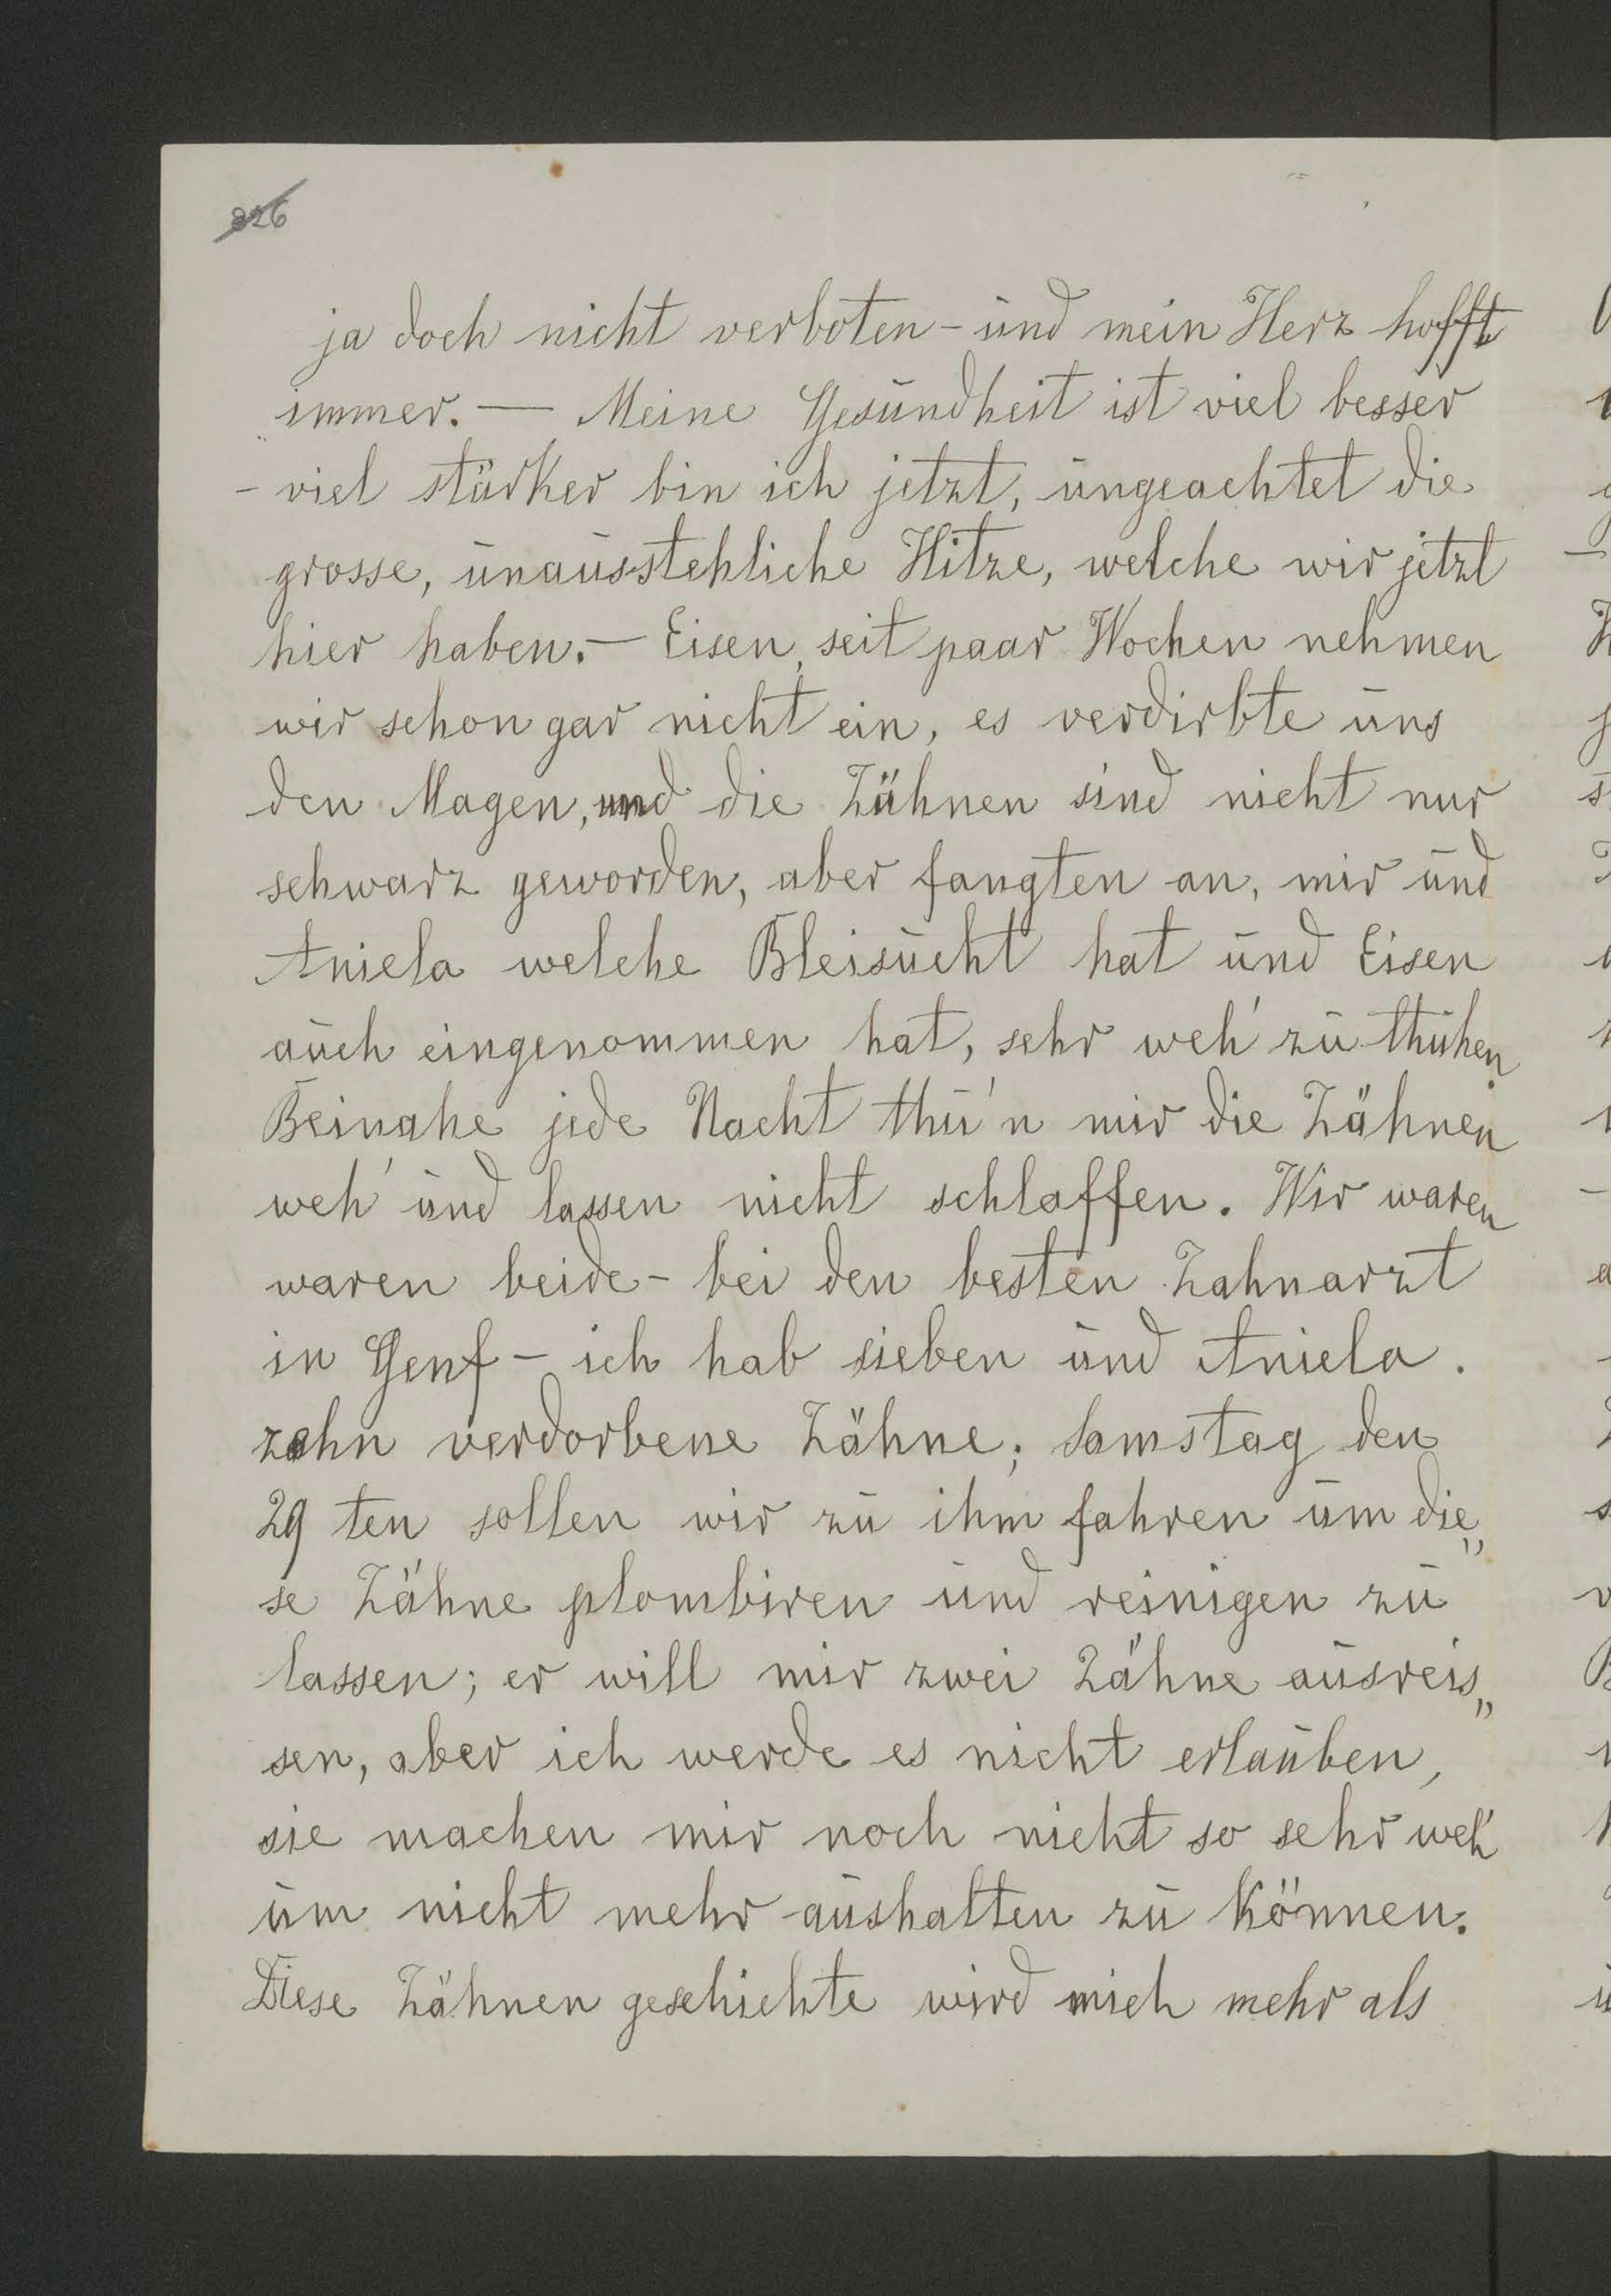 326
ja doch nicht verboten - und mein Herz hofft
immer. — Meine Gesundheit ist viel besser
- viel stärker bin ich jetzt, ungeachtet die
grosse, unausstehliche Hitze, welche wir jetzt
hier haben. — Eisen, seit paar Wochen nehmen
wir schon gar nicht ein, es verdirbte uns
den Magen, und die Zähnen sind nicht nur
schwarz geworden, aber fangten an, mir und
Aniela welche Bleisucht hat und Eisen
auch eingenommen hat, sehr weh' zu thuhen.
Beinahe jede Nacht thu'n mir die Zähnen
weh' und lassen nicht schlaffen. Wir waren
waren beide - bei den besten Zahnarzt
in Genf - ich hab sieben und Aniela.
zehn verdorbene Zähne; Samstag den
29 ten sollen wir zu ihm fahren um die„
se Zähne plombiren und reinigen zu
lassen; er will mir zwei Zähne ausreis„
sen, aber ich werde es nicht erlauben,
sie machen mir noch nicht so sehr weh'
um nicht mehr aushalten zu können.
Diese Zähnen geschichte wird mich mehr als